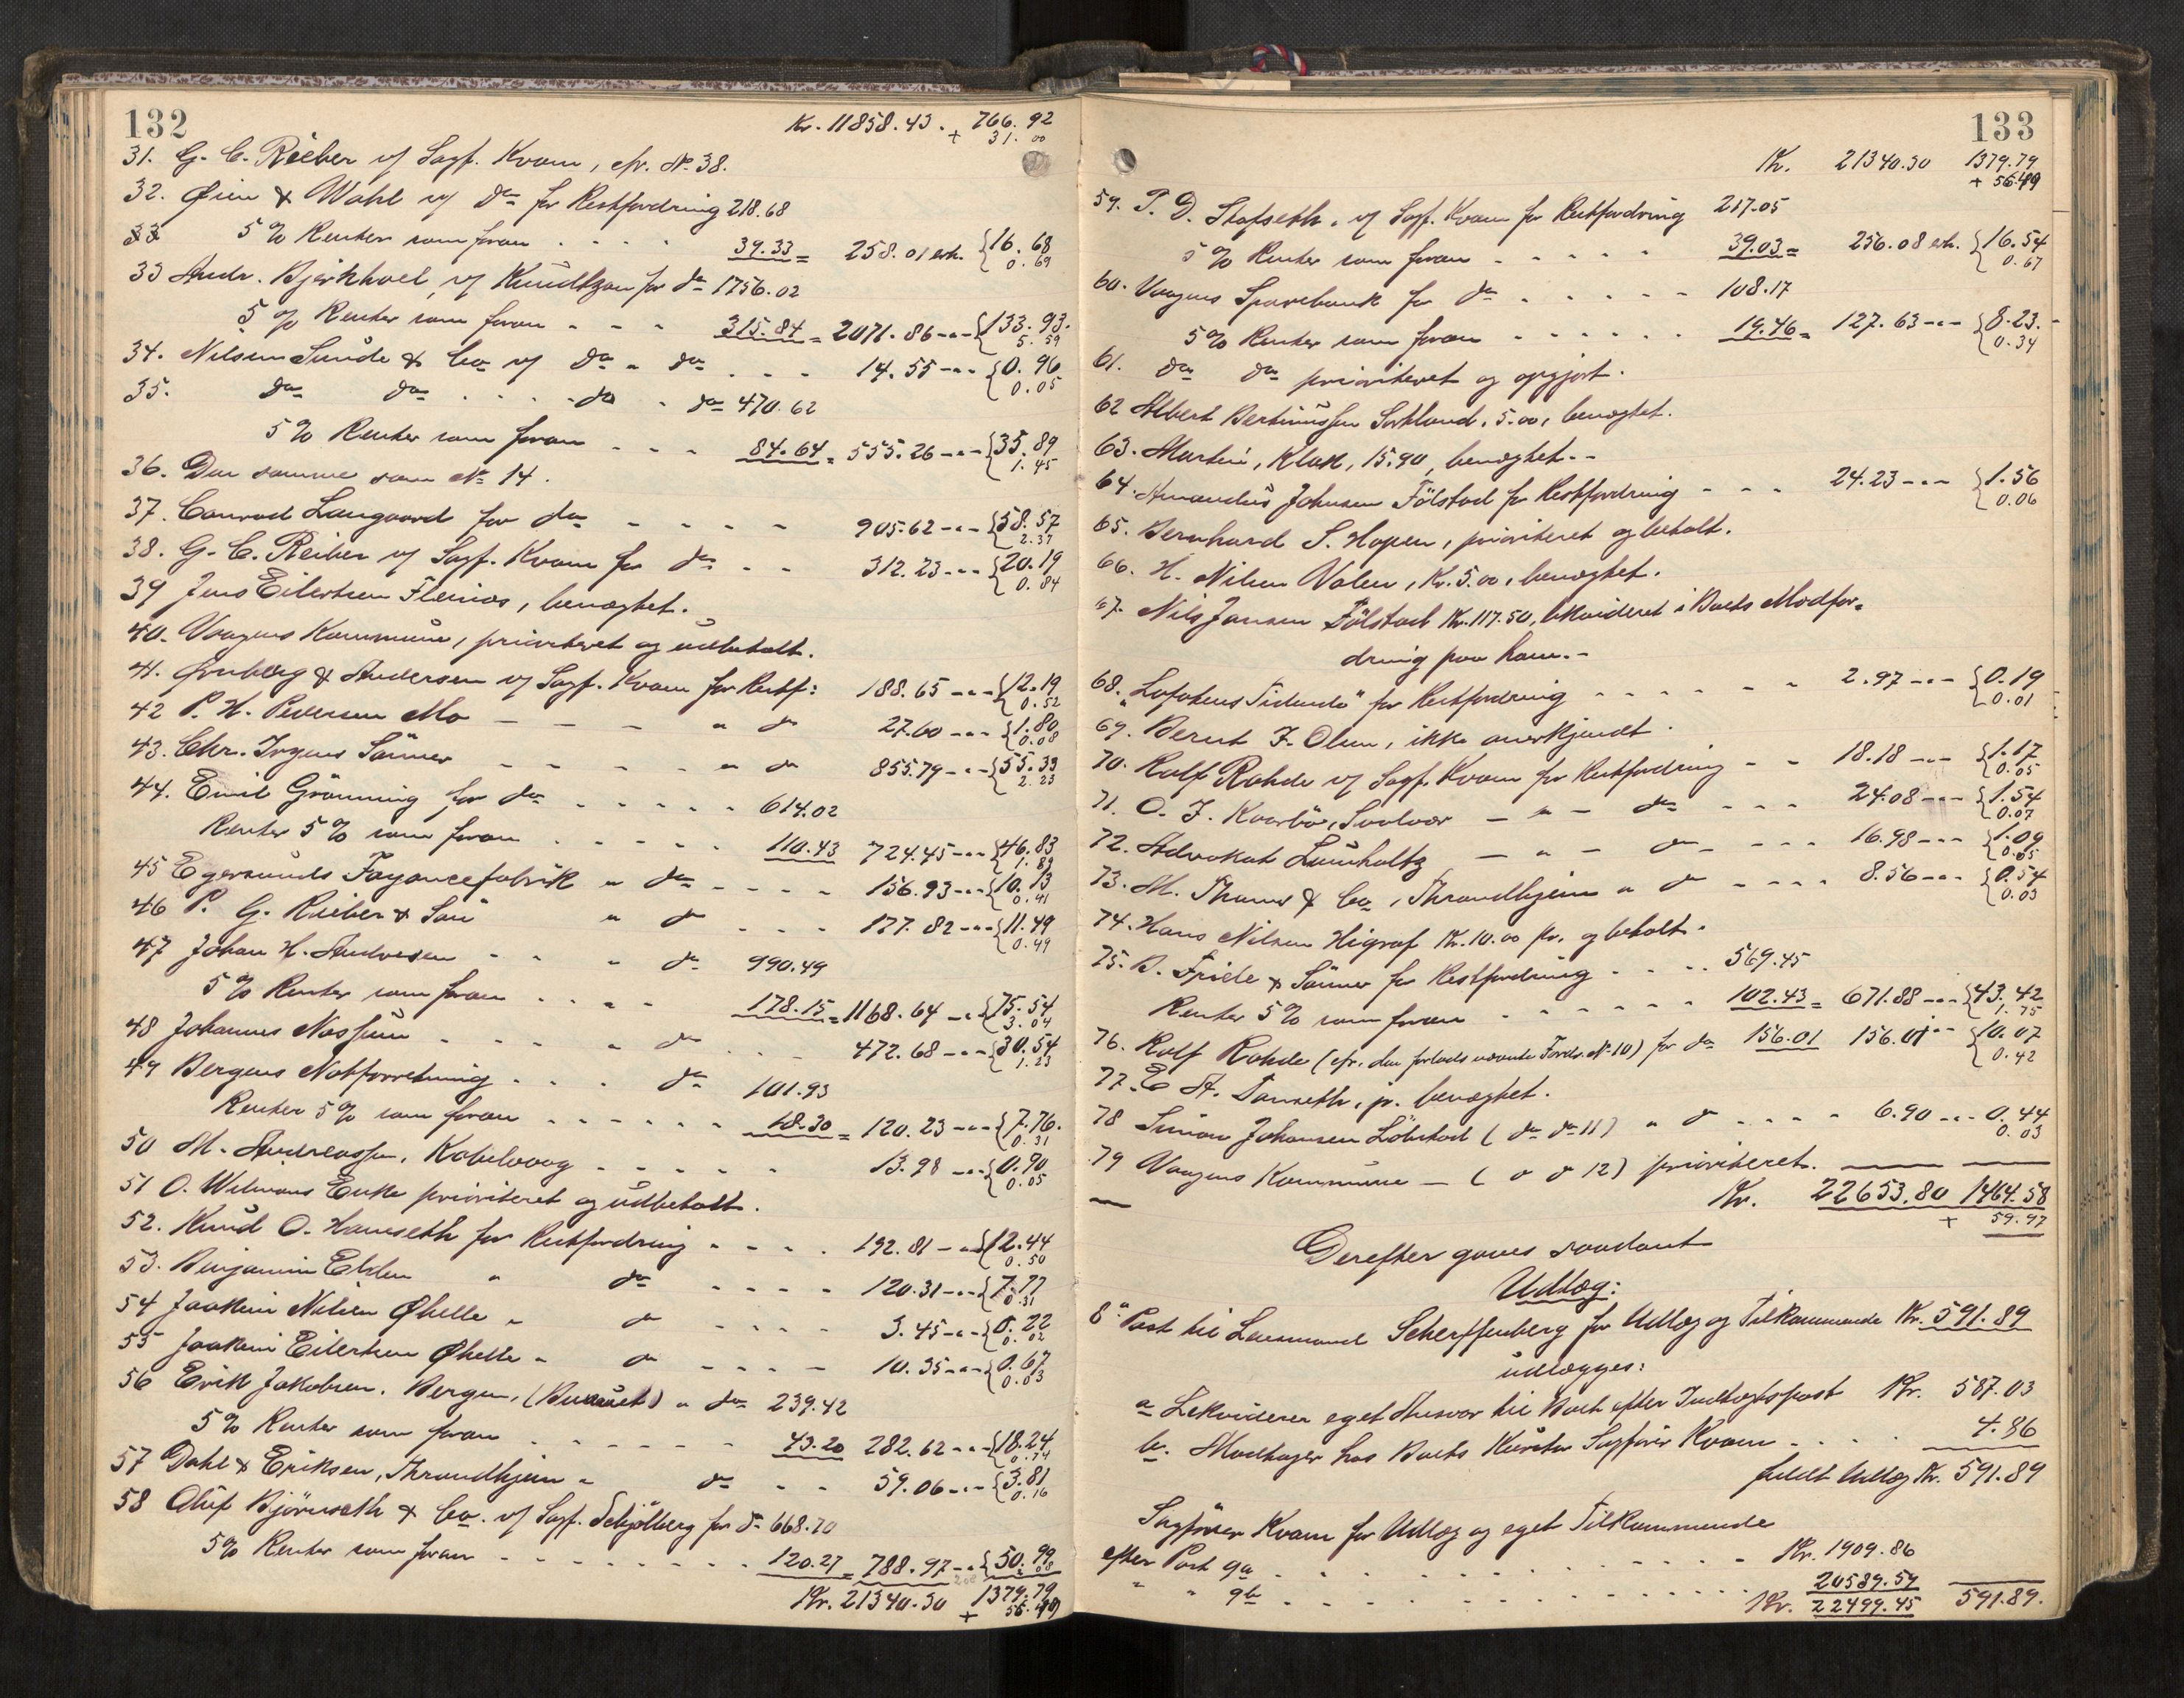 132
Kr. 11858.43. 766.92
+ 31.00
31. G. C. Rieber v/ Sagf. Kvam, cfr. No 38.
32. Øien & Wahl v/ Do for Restfordring 218.68
5% Renter som foran . . . . 39.33 = 258.01 erh. {16.68
0.69
33 Andr. Bjerkhoel, v/ Knudtzon for do 1756.02
5% Renter som foran - - - 315.84 = 2071.86 -"- {133.93.
5.59
34. Nilsen Sunde & Co v/ Do " do . . . 14.55 -"- {0.96
0.05
35. Do do . . . . do . do 470.62
5% Renter som foran - - - 84.64 = 555.26 -"- {35.89
1.45
36. Den samme som No 14.
37. Conrad Langaard for do - - - - - 905.62 -"- {58.57
2.37
38. G. C. Reiber v/ Sagf. Kvam for do - - 312.23 -"- {20.19
0.84
39 Jens Eilertsen Fleinæs, benægtet.
40. Vaagens Kommune, prioriteret og udbetalt.
41. Grnberg & Andersen v/ Sagf. Kvam for Restf: 188.65 -"- {12.19
0.52
42 P. H. Pedersen Mo — — — " do 27.60 -"- {1.80
0.08
43. Chr. Irgens Sönner - - - - - " do 855.79 -"- {55.33
2.23
44. Emil Grönning for do . . . . . . 614.02
Renter 5% som foran . . . . . . 110.43 724.45 -"- {46.83
1.89
45 Egersunds Fayancefabrik " do - - - - 156.93 -"- {10.13
0.41
46 P. G. Rieber & Sön " do - - - 177.82 -"- {11.49
0.49
47 Johan H. Andresen - - " do 990.49
5% Renter som foran . . . . 178.15 = 1168.64 -"- {75.54
3.04
48 Johannes Nossum - - - - " do . . - 472.68 -"- {30.54
1.23
49 Bergens Notforretning . . . . do 101.93
Renter 5% som foran . . . . . . 18.30 = 120.23 -"- {7.76.
0.31
50 M. Andreassen, Kabelvaag - - - - - 13.98 -"- {0.90
0.05
51 O. Wilmans Enke prioriteret og udbetalt.
52. Knud O. Hamseth for Restfordring - - - . 192.81 -"- {12.44
0.50
53. Benjamin Ebsen " do . . . . 120.31 -"- {7.77
0.31
54 Joakim Nilsen Ørhelle " do - - - - 3.45 -"- {0.22
0.02
55 Joakim Eilertsen Ørhelle " do - - - - 10.35 -"- {0.67
0.03
56 Erik Jakobsen. Bergen, ( ) " do 239.42
5% Renter som foran . . . . . . 43.20 282.62 -"- {18.24
0.74
57 Dahl & Eriksen, Throndhjem " do - - 59.06 -"- {3.81
0.16
58 Oluf Björnseth & Co. v/ Sagf. Schjölberg for do 668.70
5% Renter som foran . . . . . . . . 120.27 = 788.97 -"- {50.99
2.08
Kr. 21340.30 1379.79
+ 56.49
133
Kr. 21340.30 1379.79
+ 56.49
59. P. D. Stafseth. v/ Sagf. Kvam for Restfordring 217.05
5% Renter som foran - - - - - 39.03 = 256.08 erh. {16.54
0.67
60. Vaagens Sparebank for do . . . . . . 108.17
5% Renter som foran - - - - - - 19.46 = 127.63 -"- {8.23.
0.34
61. do do prioriteret og opgjort.
62 Albert Bertinussen Sortland, 5.00, benægtet.
63. Martin, Klak, 15.90, benægtet. -
64. Amandus Johnsen Fölstad for Restfordring - - - 24.23 -"- {1.56
0.06
65. Bernhard S. Hopen, prioriteret og betalt.
66. H. Nilsen Valen, Kr. 5.00, benægtet.
67. Nils Jansen Fölstad Kr. 117.50, likvideret i Boets Modfor-
dring paa ham. -
68. "Lofotens Tidende" for Restfordring - - - - - - 2.97 -"- {0.19
0.01
69. Bernt J. Olsen, ikke anerkjendt.
70. Rolf Rohde v/ Sagf. Kvam for Restfordring - - 18.18 -"- {1.17
0.05
71. O. J. Kaarbö, Svolvær — " — do - - - 24.08 -"- {1.54
0.07
72. Advokat Lumholtz — " — do - - - 16.98 -"- {1.09
0.05
73. M. Thams & Co, Throndhjem " do - - - - 8.56 -"- {0.54
0.03
74. Hans Nilsen Higraf Kr. 10.00 pr. og betalt.
75. B. Friele & Sönner for Restfordring . . . . 569.45
Renter 5% som foran - - - - - - 102.43 = 671.88 -"- {43.42
1.75
76. Rolf Rohde (cfr. den forlods nævnte Fordr. No 10) for do 156.01 156.01 -"- {10.07
0.42
77. E. A. Tanseth, jr. benægtet.
78 Simon Johansen Löbstad ( do do 11) " do - - - - 6.90 -"- 0.44
0.03
79 Vaagens Kommune — ( o o 12) prioriteret.
Kr. 22653.80 1464.58
+ 59.97
Derefter gaves saadant
Udlæg:
8de Post til Lensmand Scherffenberg for Udlæg og Tilkommende Kr. 591.89
udlægges:
a Lekviderer eget Ansvar til Boet efter Indtægtspost Kr. 587.03
b. Modtager hos Boets Kurator Sagfører Kvam - . . . . 4.86
fuldt Udlæg Kr. 591.89
Sagfører Kvam for Udlæg og eget Tilkommende
efter Post 9a . . . . . . . . . . Kr. 1909.86
" " 9b . . . . . . . . . . 20589.59
Kr. 22499.45 591.89.